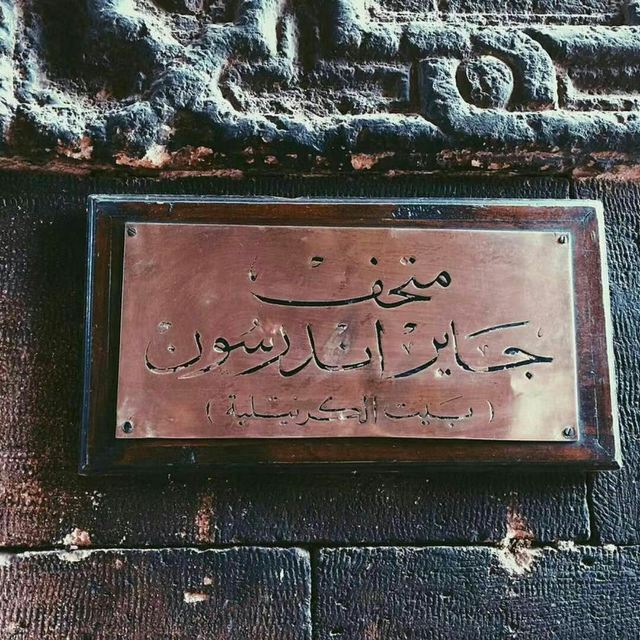 متحف
جاير اندرسون
(بيت الكريتلية)